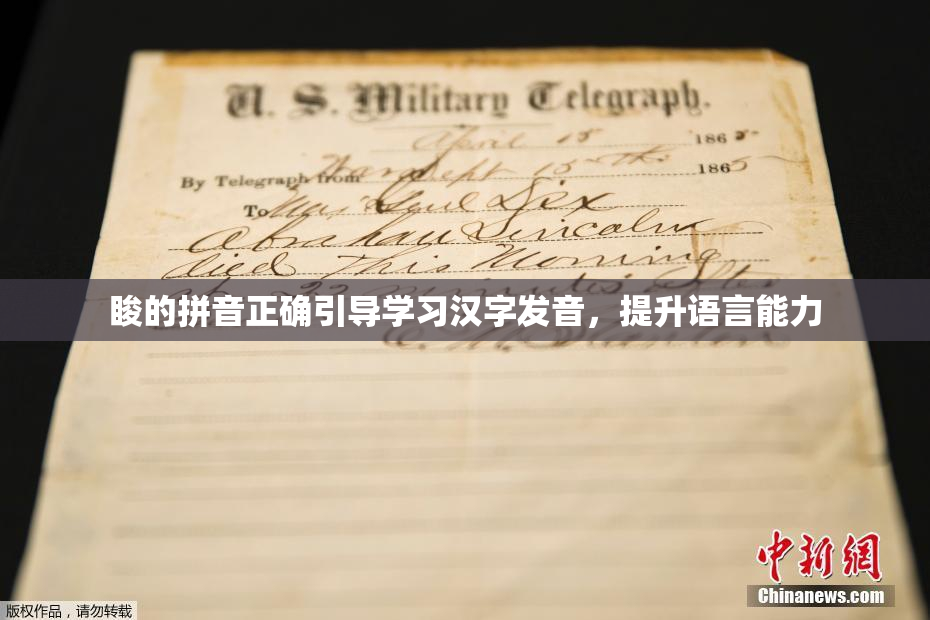 U. S. Military Telegraph.
April 15 1865
By Telegraph from War Dept 15th 1865
To Maj Genl Dix
Abraham Lincoln
died This Morning
22 minutes after
睃的拼音正确引导学习汉字发音，提升语言能力
E. M. Stanton
中新網
Chinanews.com
版权作品，请勿转载